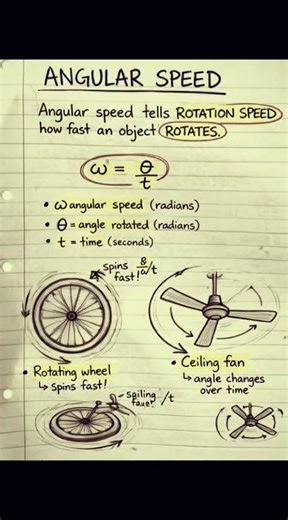 ANGULAR SPEED
Angular speed tells ROTATION SPEED
how fast an object ROTATES.
ω = θ/t
• ω angular speed (radians)
• θ = angle rotated (radians)
• t = time (seconds)
spins
fast!
• Rotating wheel
↳ spins fast!
• Ceiling fan
↳ angle changes
over time